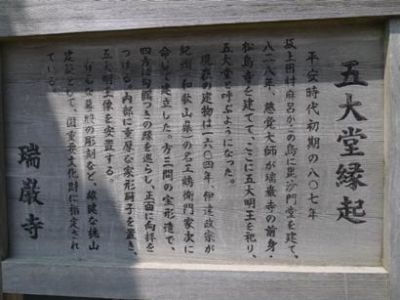 五大堂縁起
平安時代初期の八〇七年
坂上田村麻呂がこの島に毘沙門堂を建て、
八二八年、慈覚大師が瑞巌寺の前身・
松島寺を建てて、ここに五大明王を祀り、
五大堂と呼ぶようになった。
現在の建物は一六〇四年、伊達政宗が
紀州(和歌山県)の名工鶴衛門家次に
命じて建立した。方三間の宝形造で、
四方に勾欄つきの縁を巡らし、正面に向拝を
つける。内部に重厚な家形厨子を置き、
五大明王像を安置する。
な蟇股の彫刻など、雄健な桃山
建築として、国重要文化財に指定され
ている。
瑞巌寺